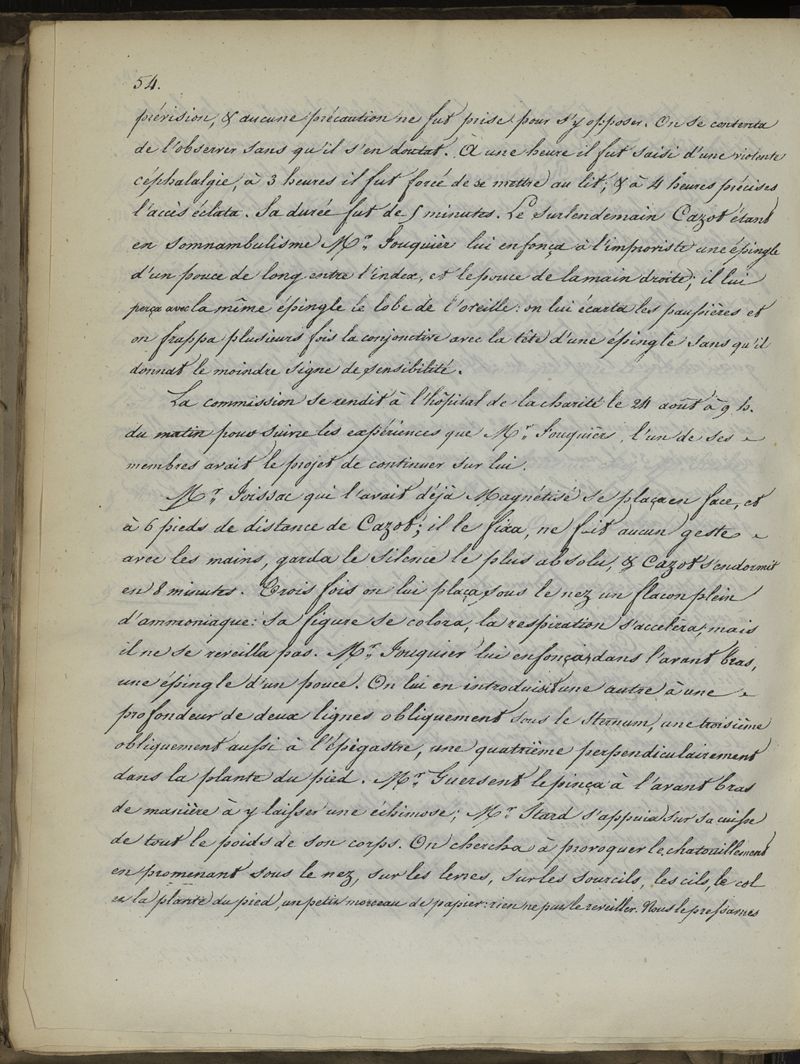 54.
prévision, & aucune précaution ne fut prise pour s'y opposer. On se contenta
de l'observer sans qu'il s'en doutat. À une heure il fut saisi d'une violente
céphalalgie, à 3 heures il fut forcé de se mettre au lit; & à 4 heures précises
l'accès éclata. Sa durée fut de 5 minutes. Le surlendemain Cazot étant
en somnambulisme Mr. Fouquier lui enfonça à l'improviste une épingle
d'un pouce de long entre l'index, et le pouce de la main droite; il lui
perça avec la même épingle le lobe de l'oreille: on lui écarta les paupières et
on frappa plusieurs fois la conjonctive avec la tête d'une épingle sans qu'il
donnat le moindre signe de sensibilité.
La commission se rendit à l'hôpital de la charité le 24 août à 9 h.
du matin pour suivre les expériences que Mr. Fouquier, l'un de ses
membres avait le projet de continuer sur lui.
Mr. Foissac qui l'avait déjà Magnétisé se plaça en face, et
à 6 pieds de distance de Cazot; il le fixa, ne fait aucun geste
avec les mains, garda le silence le plus absolu, & Cazot s'endormit
en 8 minutes. Trois fois on lui plaça, sous le nez un flacon plein
d'ammoniaque: sa figure se colora, la respiration s'accelèra, mais
il ne se reveilla pas. Mr. Fouquier lui enfonça, dans l'avant bras,
une épingle d'un pouce. On lui en introduisit une autre à une
profondeur de deux lignes obliquement sous le sternum, une troisième
obliquement aussi à l'épigastre, une quatrième perpendiculairement
dans la plante du pied. Mr. Guersent le pinça à l'avant bras
de manière à y laisser une échimose; Mr. Itard s'appuia sur sa cuisse
de tout le poids de son corps. On chercha à provoquer le chatouillement
en promenant sous le nez, sur les levres, sur les sourcils, les cils, le col
et la plante du pied, un petit morceau de papier: rien ne put le reveiller. Nous le pressames